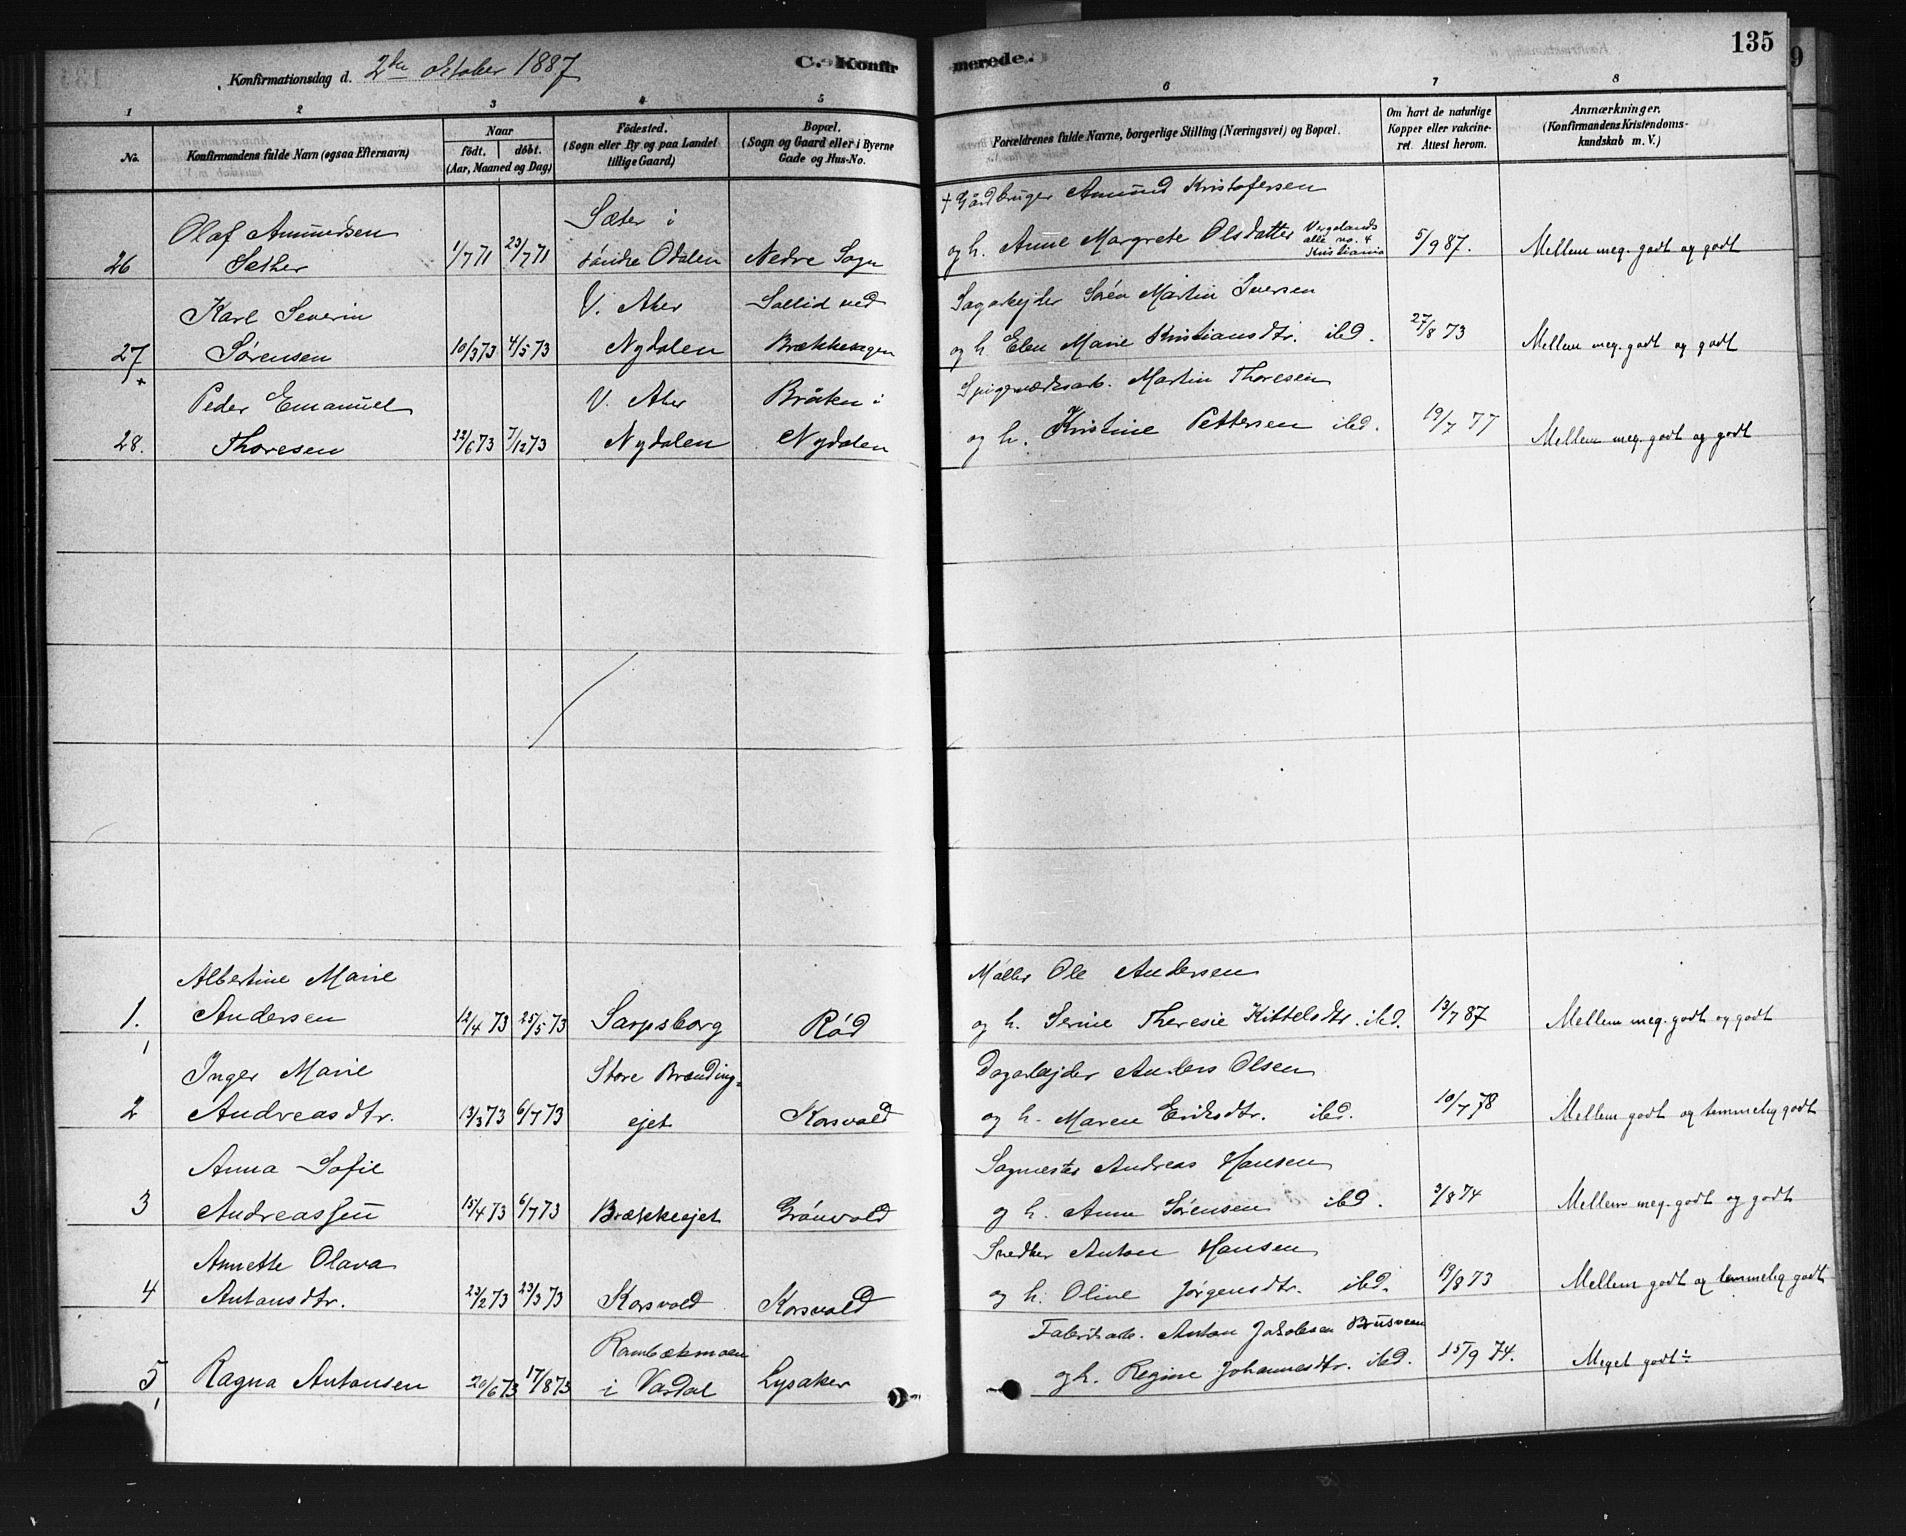 Konfirmationsdag d. 2den oktober 1887
C. Konfirmerede.
135
1 2 3 4 5 6 7 8
No.
Konfirmandens fulde Navn (ogsaa Efternavn)
Naar
født. døbt.
(Aar, Maaned og Dag)
Fødested.
(Sogn eller By og paa Landet
tillige Gaard)
Bopæl.
(Sogn og Gaard eller i Byerne
Gade og Hus-No.
Forældrenes fulde Navne, borgerlige Stilling (Næringsvei) og Bopæl.
Om havt de naturlige
Kopper eller vakcine-
ret. Attest herom.
Anmærkninger.
(Konfirmandens Kristendoms-
kundskab m. V.)
Olaf Amundsen Sæter i + Gårdbruger Amund Kristofersen
26 Sæther 1/7 71 23/7 71 søndre Odalen Nedre Sogn og h. Anne Margrete Olsdatter Vergelands alle no. 4 Kristiania 5/9 87. Mellem meg. godt og godt
Karl Severin V. Aker Sollid ved Sagarbejder Søren Martin Iversen
27 Sørensen 10/3 73 4/5 73 Nydalen Brækkesagen og h. Elen Marie Kristiansdtr. ibd. 27/8 73 Mellem meg. godt og godt
Peder Emanuel V. Aker Bråten i Martin Thoresen
28. Thoresen 22/6 73 7/12 73 Nydalen Nydalen og h. Kristine Pettersen ibd. 19/7 77 Mellem meg. godt og godt
Albertine Marie Møller Ole Andersen
1. Andersen 12/4 73 25/5 73 Sarpsborg Rød og h. Serine Theresie Kittelsdtr. ibd. 13/7 87 Mellem meg. godt og godt
Inger Marie Store Brænding- Dagarbejder Anders Olsen
2 Andreasdtr. 13/3 73 6/7 73 ejet Korsvold og h. Maren Eriksdtr. ibd. 10/7 78 Mellem godt og temmelig godt
Anna Sofie Sagmester Andreas Hansen
3 Andreassen 15/4 73 6/7 73 Brækkeejet Grønvold og h. Anne Sørensen ibd. 3/8 74 Mellem meg. godt og godt
Annette Olava Snedker Anton Hansen
4 Antonsdtr. 23/2 73 23/3 73 Korsvold Korsvold og h. Oline Jørgensdtr. ibd. 19/8 73 Mellem godt og temmelig godt
Rambækmoen Fabriksarb. Anton Jakobsen Brusveen
5 Ragna Antonsen 20/6 73 17/8 73 i Vardal Lysaker og h. Regine Johannesdtr. ibd. 15/9 74. Meget godt ÷